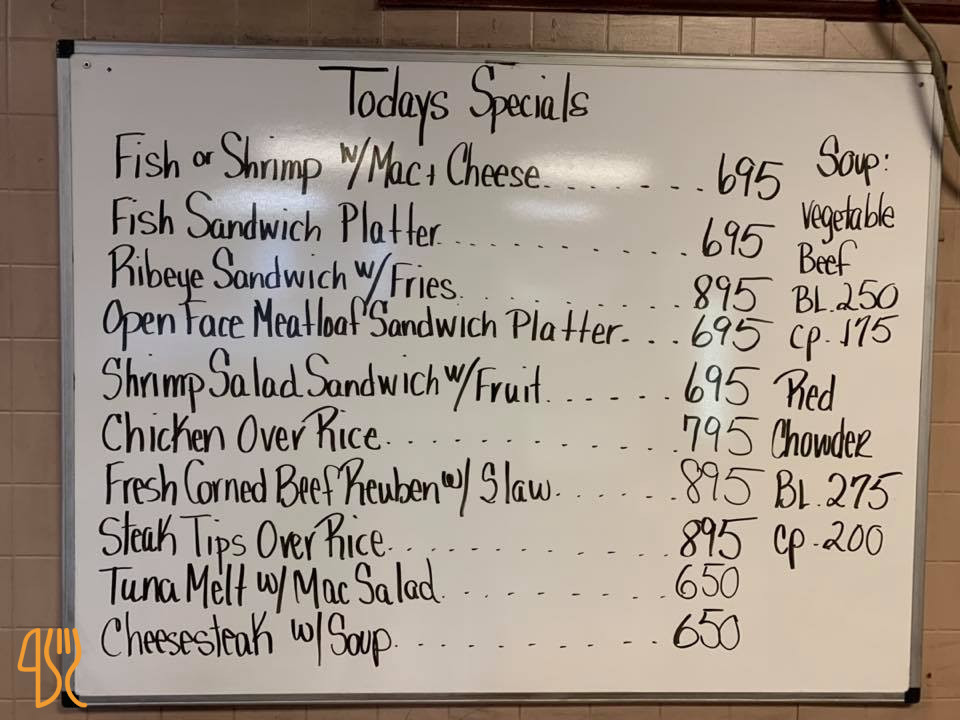 Todays Specials
Fish or Shrimp w/Mac + Cheese....... 695
Fish Sandwich Platter............ 695
Ribeye Sandwich w/Fries........... 895
Open Face Meatloaf Sandwich Platter... 695
Shrimp Salad Sandwich w/Fruit...... 695
Chicken Over Rice........... 795
Fresh Corned Beef Reuben w/ Slaw......895
Steak Tips Over Rice........... 895
Tuna Melt w/ Mac Salad......... 650
Cheesesteak w/ Soup.......... 650
Soup:
Vegetable
Beef
BL.250
Cp.175
Red
Chowder
BL.275
Cp.200